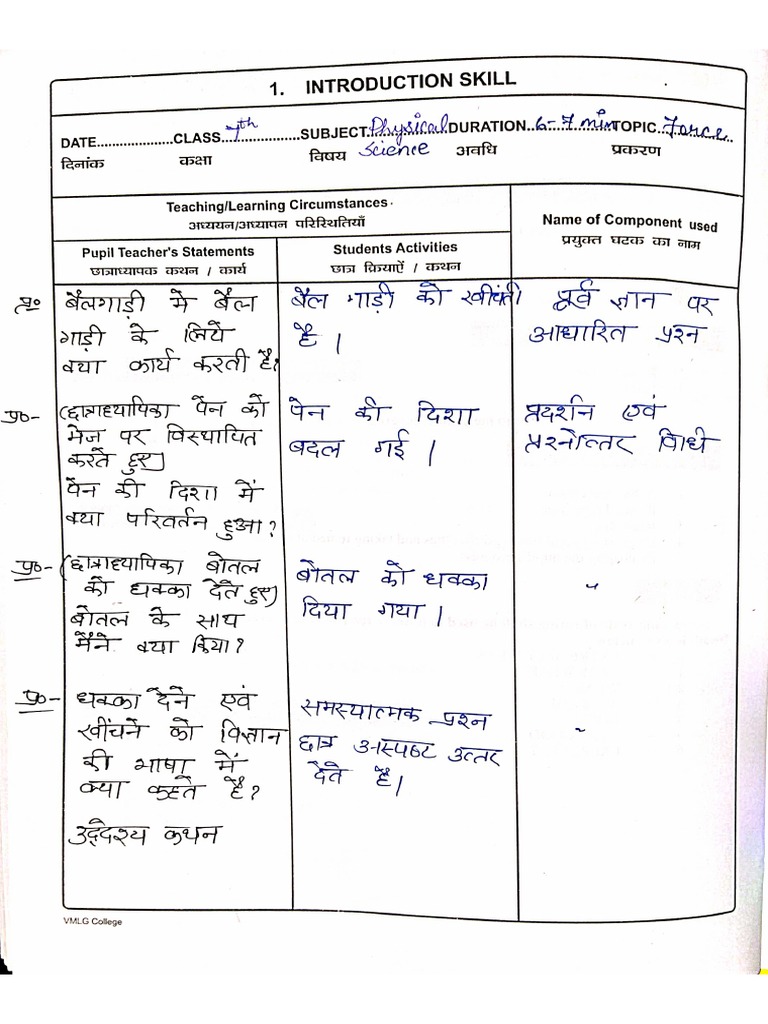 1. INTRODUCTION SKILL
DATE.....................CLASS 7th SUBJECT Physical Science DURATION 6-7 min TOPIC Force
दिनांक कक्षा विषय अवधि प्रकरण
Teaching/Learning Circumstances
अध्ययन/अध्यापन परिस्थितियाँ
Name of Component used
प्रयुक्त घटक का नाम
Pupil Teacher's Statements
छात्राध्यापक कथन / कार्य
Students Activities
छात्र क्रियाऐं / कथन
प्र० बैलगाड़ी में बैल
गाड़ी के लिये
क्या कार्य करती है?
बैल गाड़ी को खींचती
है।
पूर्व ज्ञान पर
आधारित प्रश्न
प्र०- (छात्राध्यापिका पेन को
मेज पर विस्थापित
करते हुए)
पेन की दिशा में
क्या परिवर्तन हुआ?
पेन की दिशा
बदल गई।
प्रदर्शन एवं
प्रश्नोत्तर विधि
प्र०- (छात्राध्यापिका बोतल
को धक्का देते हुए)
बोतल के साथ
मैंने क्या किया?
बोतल को धक्का
दिया गया।
"
प्र०- धक्का देने एवं
खींचने को विज्ञान
की भाषा में
क्या कहते है?
समस्यात्मक प्रश्न
छात्र अस्पष्ट उत्तर
देते है।
"
उद्देश्य कथन
VMLG College